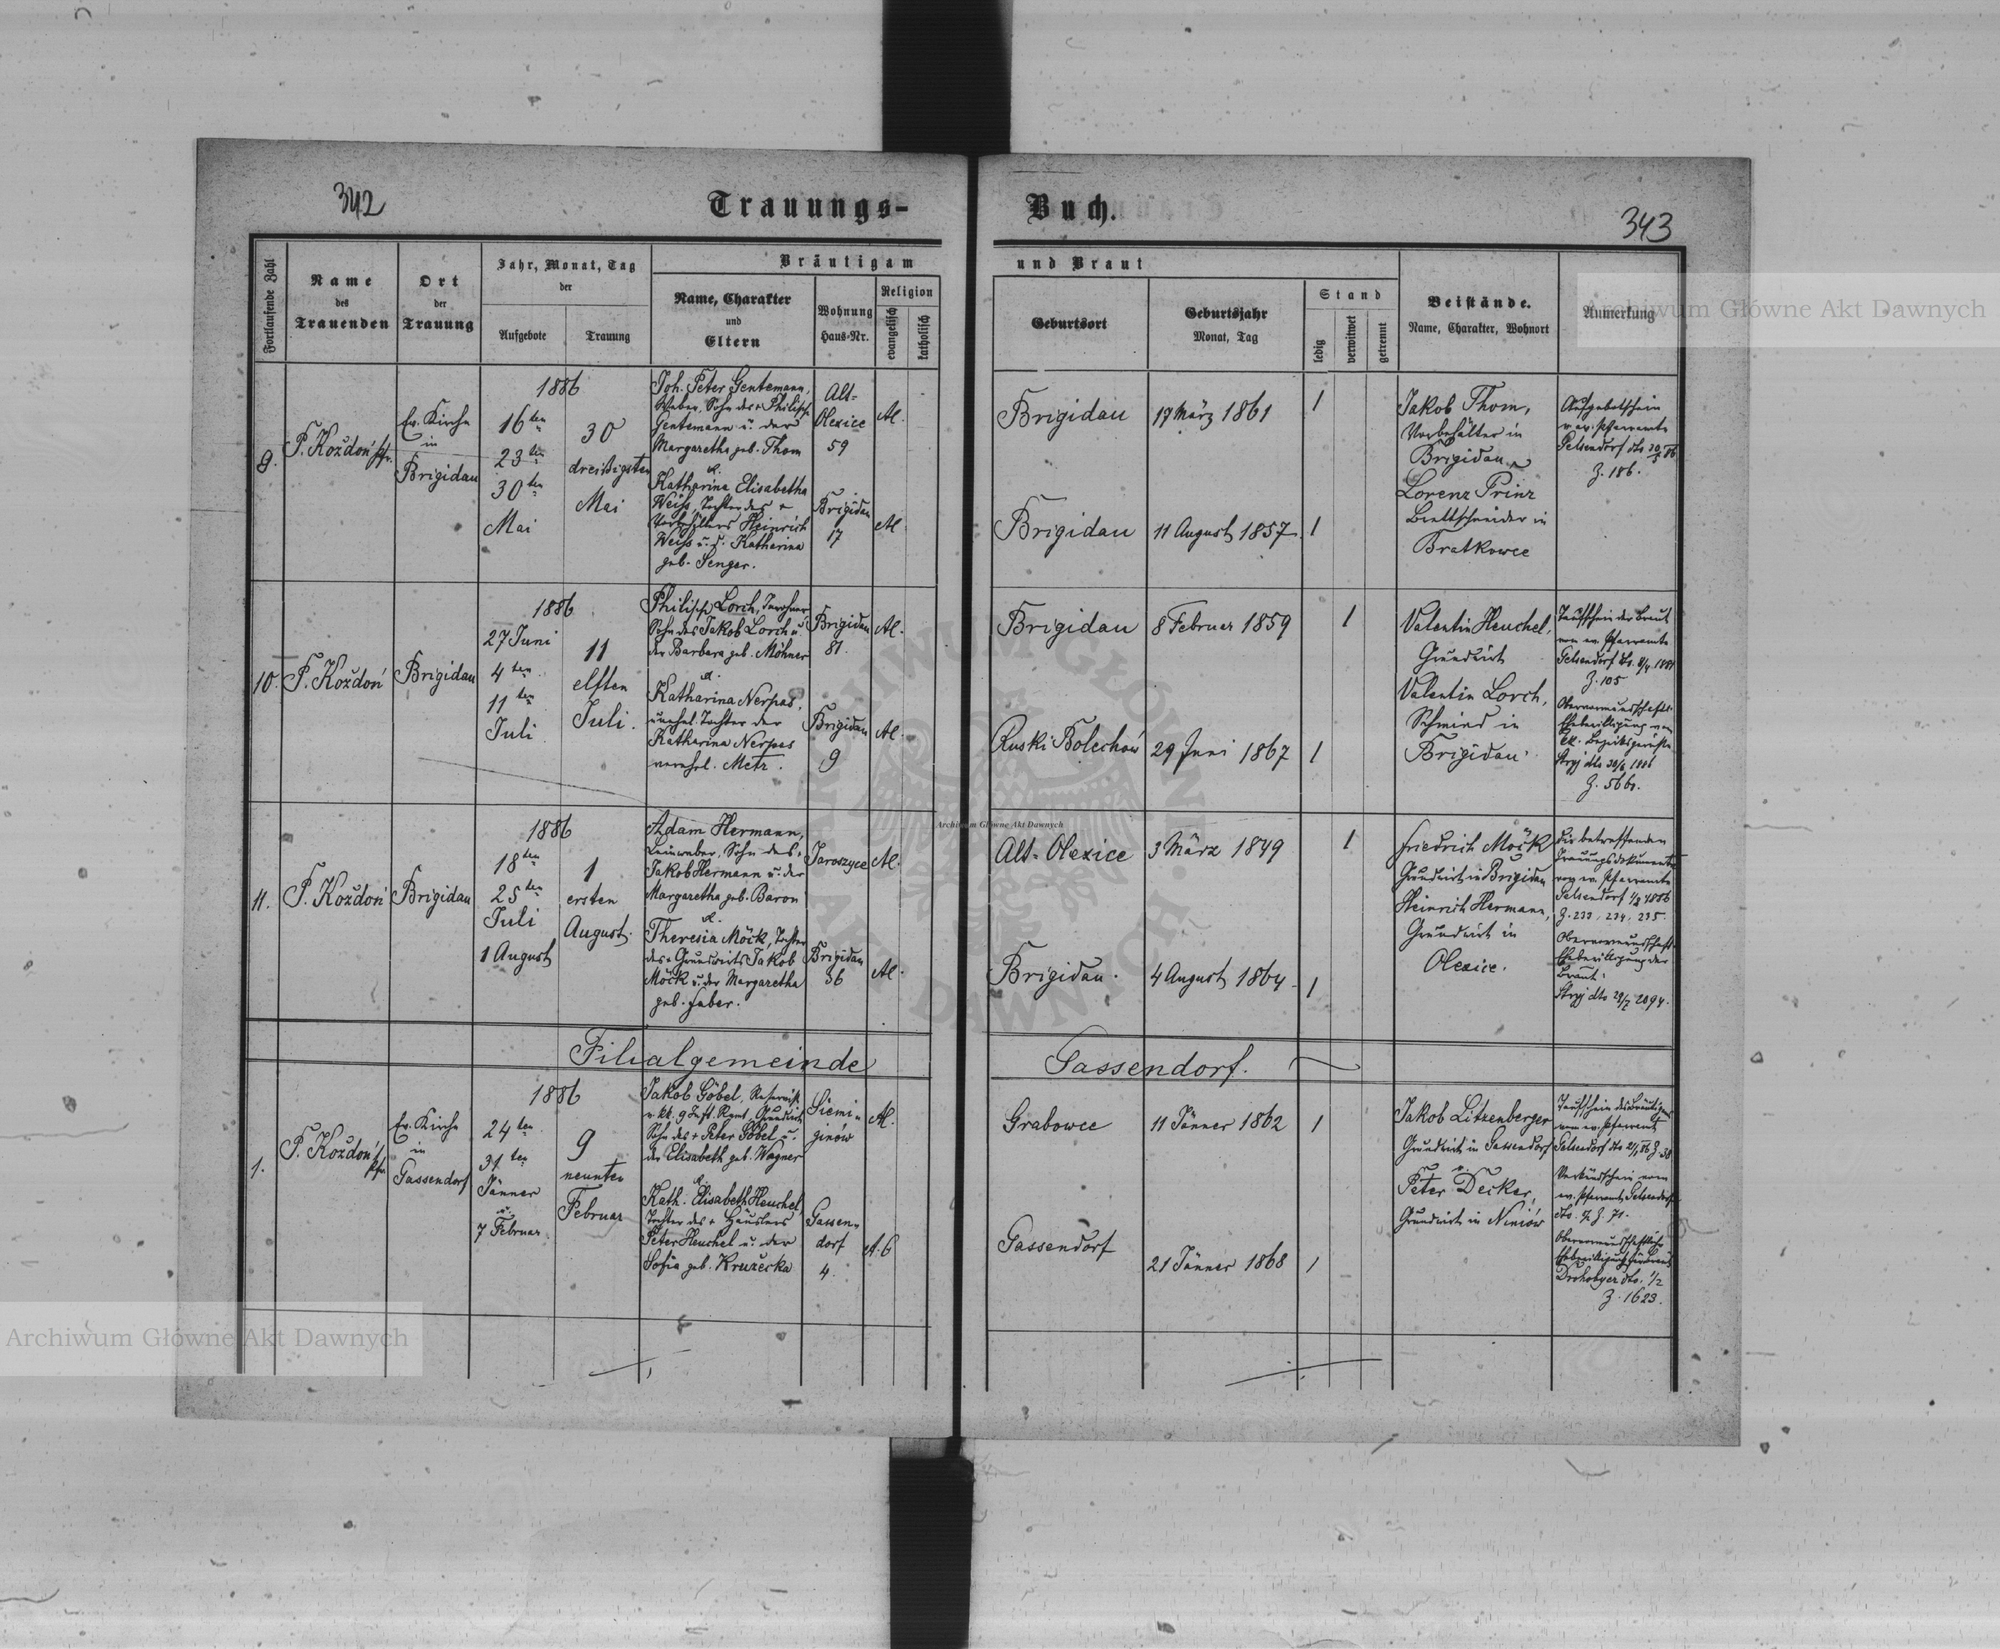 342
Trauungs-
Buch.
343
Fortlaufende Zahl
Name
des
Trauenden
Ort
der
Trauung
Jahr, Monat, Tag
der
Aufgebote
Trauung
Bräutigam
und Braut
Name, Charakter
und
Eltern
Wohnung
Haus-Nr.
Religion
evangelisch
katholisch
Geburtsort
Geburtsjahr
Monat, Tag
Stand
ledig
verwitwet
getrennt
Beistände.
Name, Charakter, Wohnort
Anmerkung
9.
P. Kożdoń Pfr.
Ev. Kirche
in
Brigidau
1886
16ten
23ten
30ten
Mai
30
dreißigsten
Mai
Joh. Peter Gentemann,
Weber, Sohn des + Philipp
Gentemann u. der
Margaretha geb. Thom
u.
Katharina Elisabetha
Weiss, Tochter des +
Heinrich
Weiss u. d. Katharina
geb. Senger.
Alt-
Olexice
59
Brigidau
17
A.
A.
Brigidau
17 März 1861
1
Brigidau
11 August 1857.
1
Jakob Thom,
Vorbehälter in
Brigidau
Lorenz Prinz
Brettschneider in
Bratkowce
Aufgebotschein
v. ev. Pfarramte
Gelsendorf dto 30/5 86
Z. 186.
10.
P. Kożdoń
Brigidau
1886
27 Juni
4ten
11ten
Juli
11
elften
Juli.
Philipp Lorch,
Sohn des Jakob Lorch u.
der Barbara geb. Möhner
u.
Katharina Nerpas,
unehel. Tochter der
Katharina Nerpas
verehel. Metz.
Brigidau
81.
Brigidau
9
A.
A.
Brigidau
8 Februar 1859
1
Ruski Bolechów
29 Juni 1867
1
Valentin Heuchel,
Grundwirt
Valentin Lorch,
Schmied in
Brigidau.
Taufschein der Braut
vom ev. Pfarramte
Gelsendorf
Z. 105
Obervormundschaftl.
Ehebewilligung vom
kk. Bezirksgerichte
Stryj dto 30/6 1886
Z. 5660.
11.
P. Kożdoń
Brigidau
1886
18ten
25ten
Juli
1 August
1
ersten
August.
Adam Hermann,
Leinweber, Sohn des +
Jakob Hermann u. der
Margaretha geb. Baron
u.
Theresia Möck, Tochter
des + Grundwirts Jakob
Möck u. der Margaretha
geb. Huber.
Jaroszyce
Brigidau
36
A.
A.
Alt-Olexice
3 März 1849
1
Brigidau.
4 August 1864.
1
Friedrich Möck
Grundwirt in Brigidau
Heinrich Hermann,
Grundwirt in
Olexice.
Die betreffenden
Trauungsdokumente
vom ev. Pfarramte
Gelsendorf 1/8 1886
Z. 233, 234, 235.
Obervormundschaftl.
Ehebewilligung der
Braut:
Stryj dto 29/7 2094.
Filialgemeinde
Gassendorf.
1.
P. Kożdoń
Pfr.
Ev. Kirche
in
Gassendorf
1886
24ten
31ten
Jänner
u.
7 Februar
9
neunten
Februar
Jakob Göbel, Reservist
v. kk. 9 Inft. Rgmt. Grundwirt
Sohn des + Peter Göbel u.
der Elisabeth geb. Wagner
u.
Kath. Elisabeth Heuchel,
Tochter des + Häuslers
Peter Heuchel u. der
Sofia geb. Kruzecka
Siemi-
ginów
Gassen-
dorf
4.
A.
A. 6
Grabowce
11 Jänner 1862
1
Gassendorf
21 Jänner 1868
1
Jakob Litzenberger
Grundwirt in Gassendorf
u.
Peter Decker,
Grundwirt in Niniów
Taufschein des Bräutigams
vom ev. Pfarramt
Gelsendorf dto 21/1 86 Z. 38
Verkündschein vom
ev. Pfarramt Gelsendorf
Z. 71.
Obervormundschaftliche
Ehebewilligung für Braut
Drohobycz dto. 1/2
Z. 1623.
Archiwum Główne Akt Dawnych
Archiwum Główne Akt Dawnych
Archiwum Główne Akt Dawnych
ARCHIWUM GŁÓWNE AKT DAWNYCH